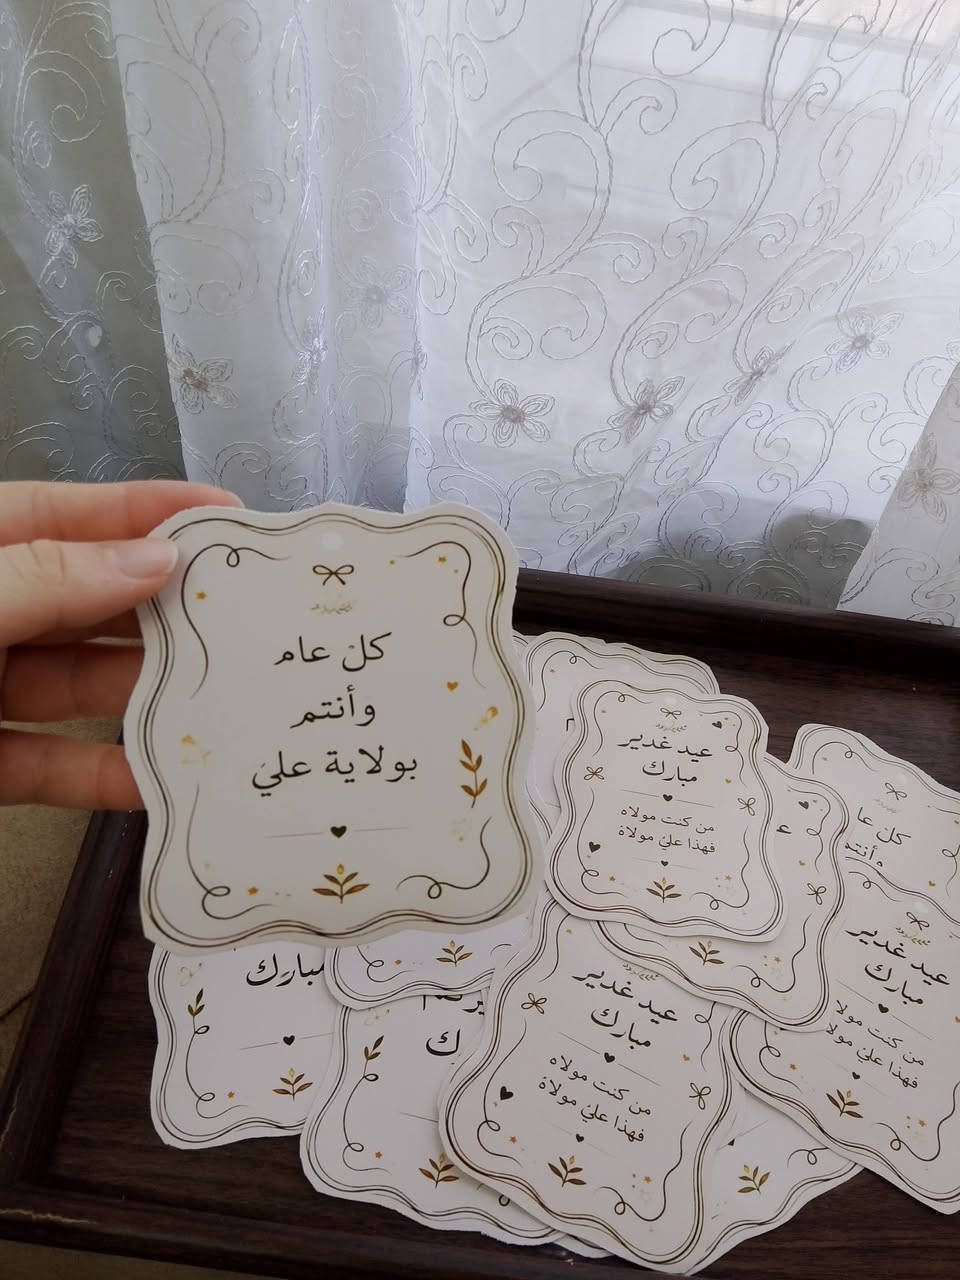 كل عام
وأنتم
بولاية علي
عيد غدير
مبارك
من كنت مولاه
فهذا علي مولاة
كل عا
وأنتم
عيد غدير
مبارك
من كنت مولا
فهذا علي مولا
عيد غدير
مبارك
من كنت مولاه
فهذا علي مولاة
مبارك
ك